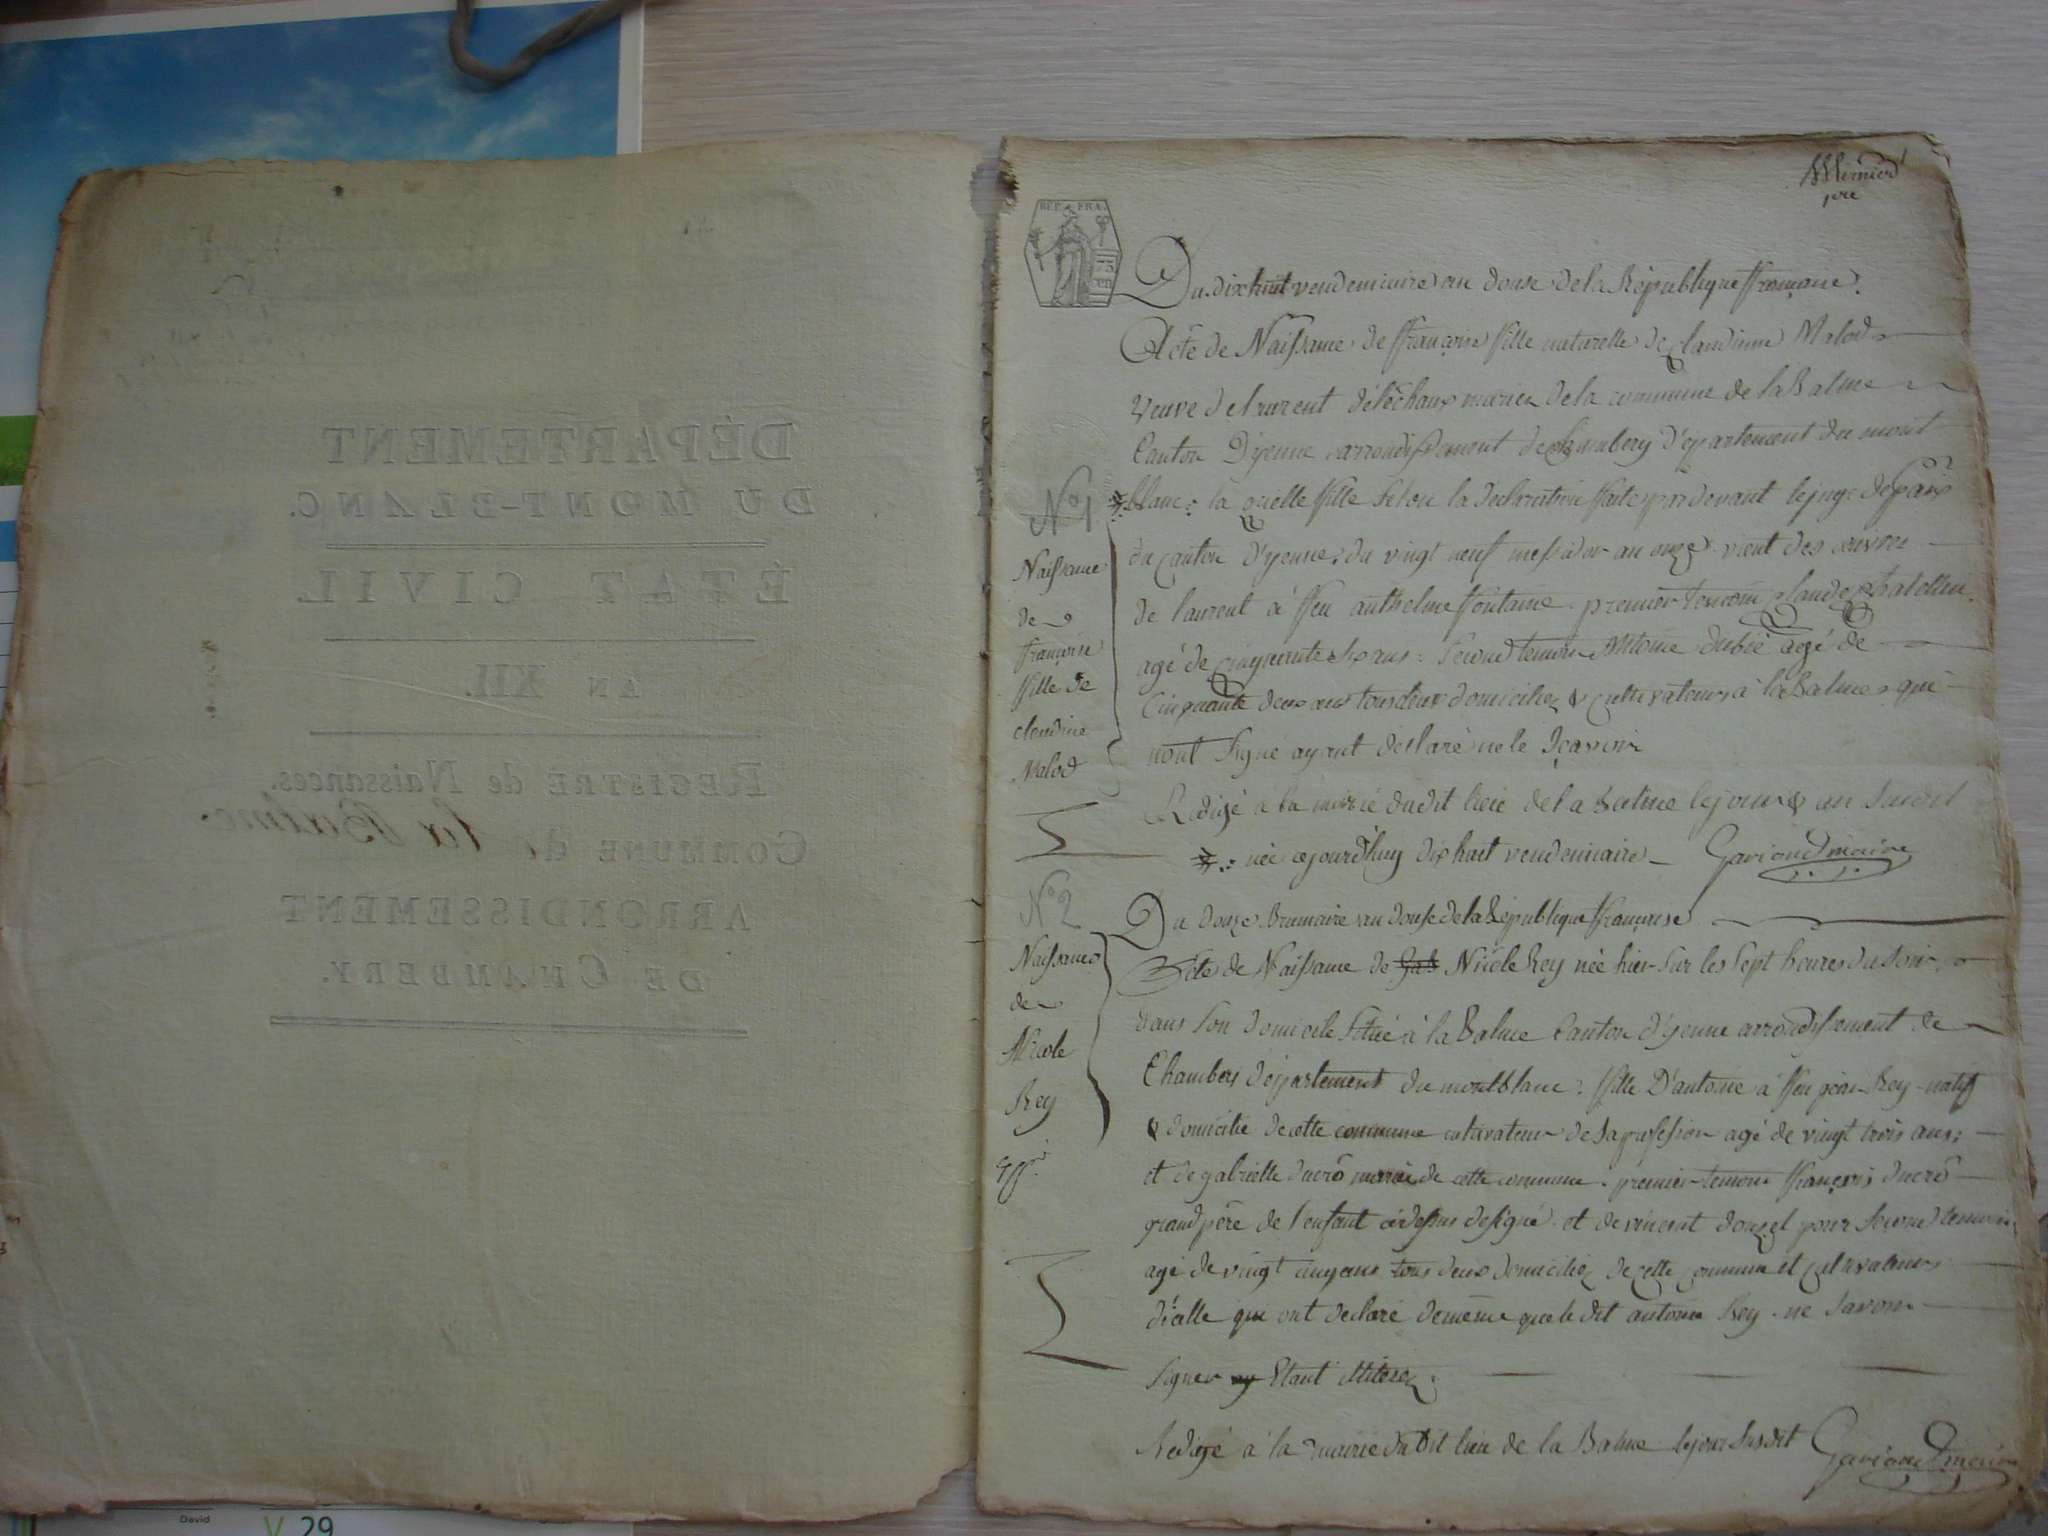 DÉPARTEMENT
DU MONT-BLANC.
ÉTAT CIVIL
AN XII.
REGISTRE de Naissances.
COMMUNE de la Balme
ARRONDISSEMENT
DE CHAMBERY.
David
V 29
premier
REP. FRA.
Du dixhuit vendemiaire an douse de la République françoise.
Acte de Naissance de françoise fille naturelle de claudine Malod
veuve de laurent deléchaux de la commune de la Balme
Canton D'yenne arrondissement de Chambery d'épartement du mont
blanc : la quelle fille selon la déclaration faite par devant le juge de paix
du Canton d'yenne, du vingt neuf messidor an onze vient des œuvres
de laurent à feu anthelme fontaine. premier temoin Claude
agé de cinquante six ans : second temoin Antoine dubié agé de
Cinquante deux ans tous deux domiciliez & cultivateurs à la Balme, qui
nont signé ayant declaré ne le sçavoir
Redigé a la mairie dudit lieu de la Balme le jour & an susdit
née cejourd'huy dix huit vendemiaire Gavioud maire
No 1
Naissance
de
françoise
fille de
claudine
Malod
Du douze Brumaire an douse de la République françoise
Acte de Naissance de Nicole Rey née hier sur les sept heures du soir
dans son domicile situé à la Balme Canton d'yenne arrondissement de
Chambery département du montblanc : fille D'antoine à feu jean Rey natif
& domicilié de cette commune cultivateur de sa profession agé de vingt trois ans;
et de gabrielle ducrô de cette commune. premier temoin françois ducrô
grand père de l'enfant ci dessus designé. et de vincent donzel pour second temoin
agé de vingt cinq ans tous deux domiciliez de cette commune et cultivateurs
d'icelle qui ont declaré de même que le dit antoine Rey ne savoir
signer Etant illiterez.
Redigé à la mairie du Dit lieu de la Balme le jour susdit Gavioud maire
No 2
Naissance
de
Nicole
Rey